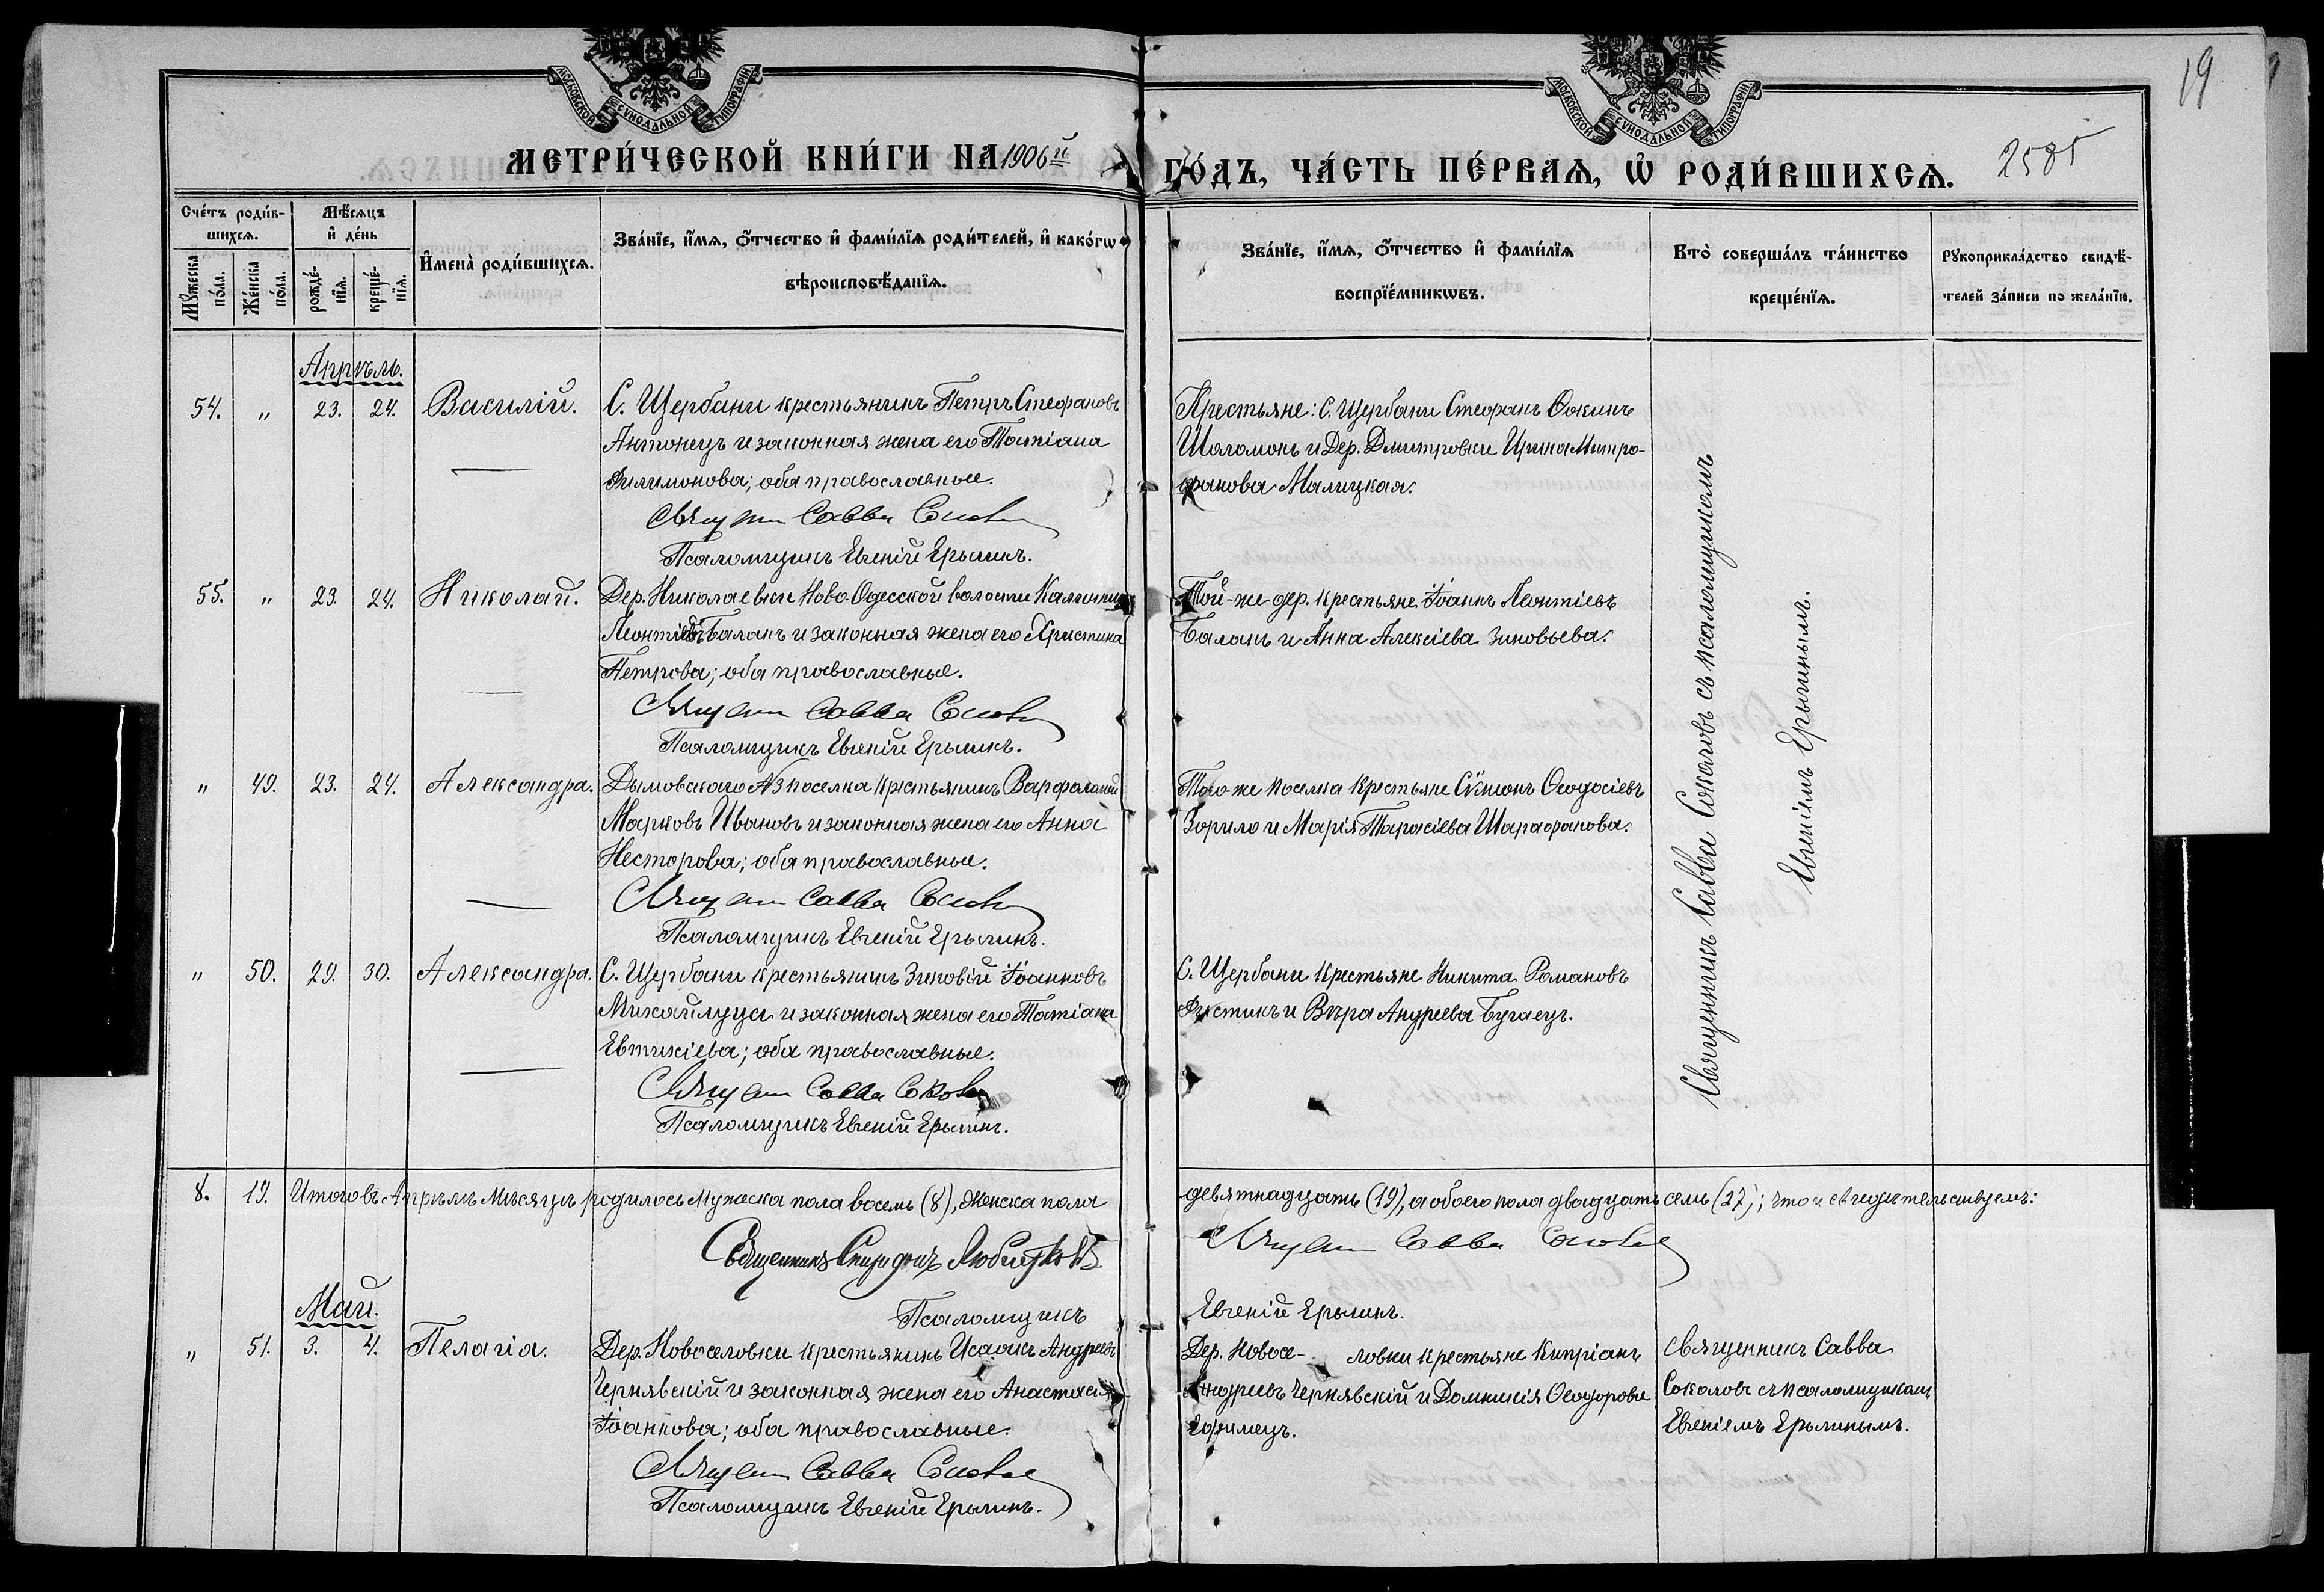 19
2585
МОСКОВСКОЙ СѴНОДАЛЬНОЙ ТИПОГРАФІИ
МОСКОВСКОЙ СѴНОДАЛЬНОЙ ТИПОГРАФІИ
МЕТРИ́ЧЕСКОЙ КНИ́ГИ НА 1906й ГО́ДЪ, ЧА́СТЬ ПЕ́РВАѦ, Ѡ҆ РОДИ́ВШИХСѦ.
Сче́тъ роди́в-
шихсѧ.
Мѣ́сѧцъ
и҆ де́нь
Мꙋ́жеска
по́ла.
Же́нска
по́ла.
рожде́-
нїѧ.
креще́-
нїѧ.
И҆мена̀ роди́вшихсѧ.
Зва́нїе, и҆́мѧ, ѻ҆́тчество и҆ фами́лїѧ роди́телей, и҆ како́гѡ
вѣроисповѣ́данїѧ.
Зва́нїе, и҆́мѧ, ѻ҆́тчество и҆ фами́лїѧ
воспрїе́мникѡвъ.
Кто̀ соверша́лъ та́инство
креще́нїѧ.
Рꙋкоприкла́дство свидѣ́-
телей за́писи по жела́нїю.
Апрѣль.
54. " 23. 24. Василій. С. Щербани крестьянинъ Петръ Стефановъ
Антонецъ и законная жена его Татіана
Филимонова; оба православные.
Священникъ Савва Соколовъ
Псаломщикъ Евгеній Ерыгинъ.
Крестьяне: с. Щербани Стефанъ Ѳокинъ
Шоломонъ и Дер. Дмитровки Ирина Митро-
фанова Малицкая.
55. " 23. 24. Николай. Дер. Николаевки Ново-Одесской волости
Леонтіевъ Баланъ и законная жена его Христина
Петрова; оба православные.
Священникъ Савва Соколовъ
Псаломщикъ Евгеній Ерыгинъ.
Той-же дер. крестьяне Іоаннъ Леонтіевъ
Баланъ и Анна Алексіева Зиновьева.
" 49. 23. 24. Александра. Дымовскаго №3 поселка крестьянинъ Варфоломей
Марковъ Ивановъ и законная жена его Анна
Несторова; оба православные.
Священникъ Савва Соколовъ
Псаломщикъ Евгеній Ерыгинъ.
Того же поселка крестьяне Сѵмеонъ Ѳеодосіевъ
Зорило и Марія Тарасіева Шарафанова.
" 50. 29. 30. Александра. С. Щербани крестьянинъ Зиновій Іоанновъ
Михайлуца и законная жена его Татіана
Евтихіева; оба православные.
Священникъ Савва Соколовъ
Псаломщикъ Евгеній Ерыгинъ.
С. Щербани крестьяне Никита Романовъ
Фустикъ и Вѣра Андреева Бугаецъ.
Священникъ Савва Соколовъ съ псаломщикомъ
Евгеніемъ Ерыгинымъ.
8. 19. Итого въ Апрѣлѣ мѣсяцѣ родилось мужеска пола восемь (8), женска пола девятнадцать (19), а обоего пола двадцать семь (27); что и свидѣтельствуемъ:
Священникъ Спиридонъ
Священникъ Савва Соколовъ
Псаломщикъ Евгеній Ерыгинъ.
Май.
" 51. 3. 4. Пелагіа. Дер. Новоселовки крестьянинъ Исаакъ Андреевъ
Чернявскій и законная жена его Анастасія
Іоаннова; оба православные.
Священникъ Савва Соколовъ
Псаломщикъ Евгеній Ерыгинъ.
Дер. Новосе- ловки крестьяне Кипріанъ
Андреевъ Чернявскій и Домникія Ѳеодорова
Ефимецъ.
Священникъ Савва
Соколовъ съ псаломщикомъ
Евгеніемъ Ерыгинымъ.